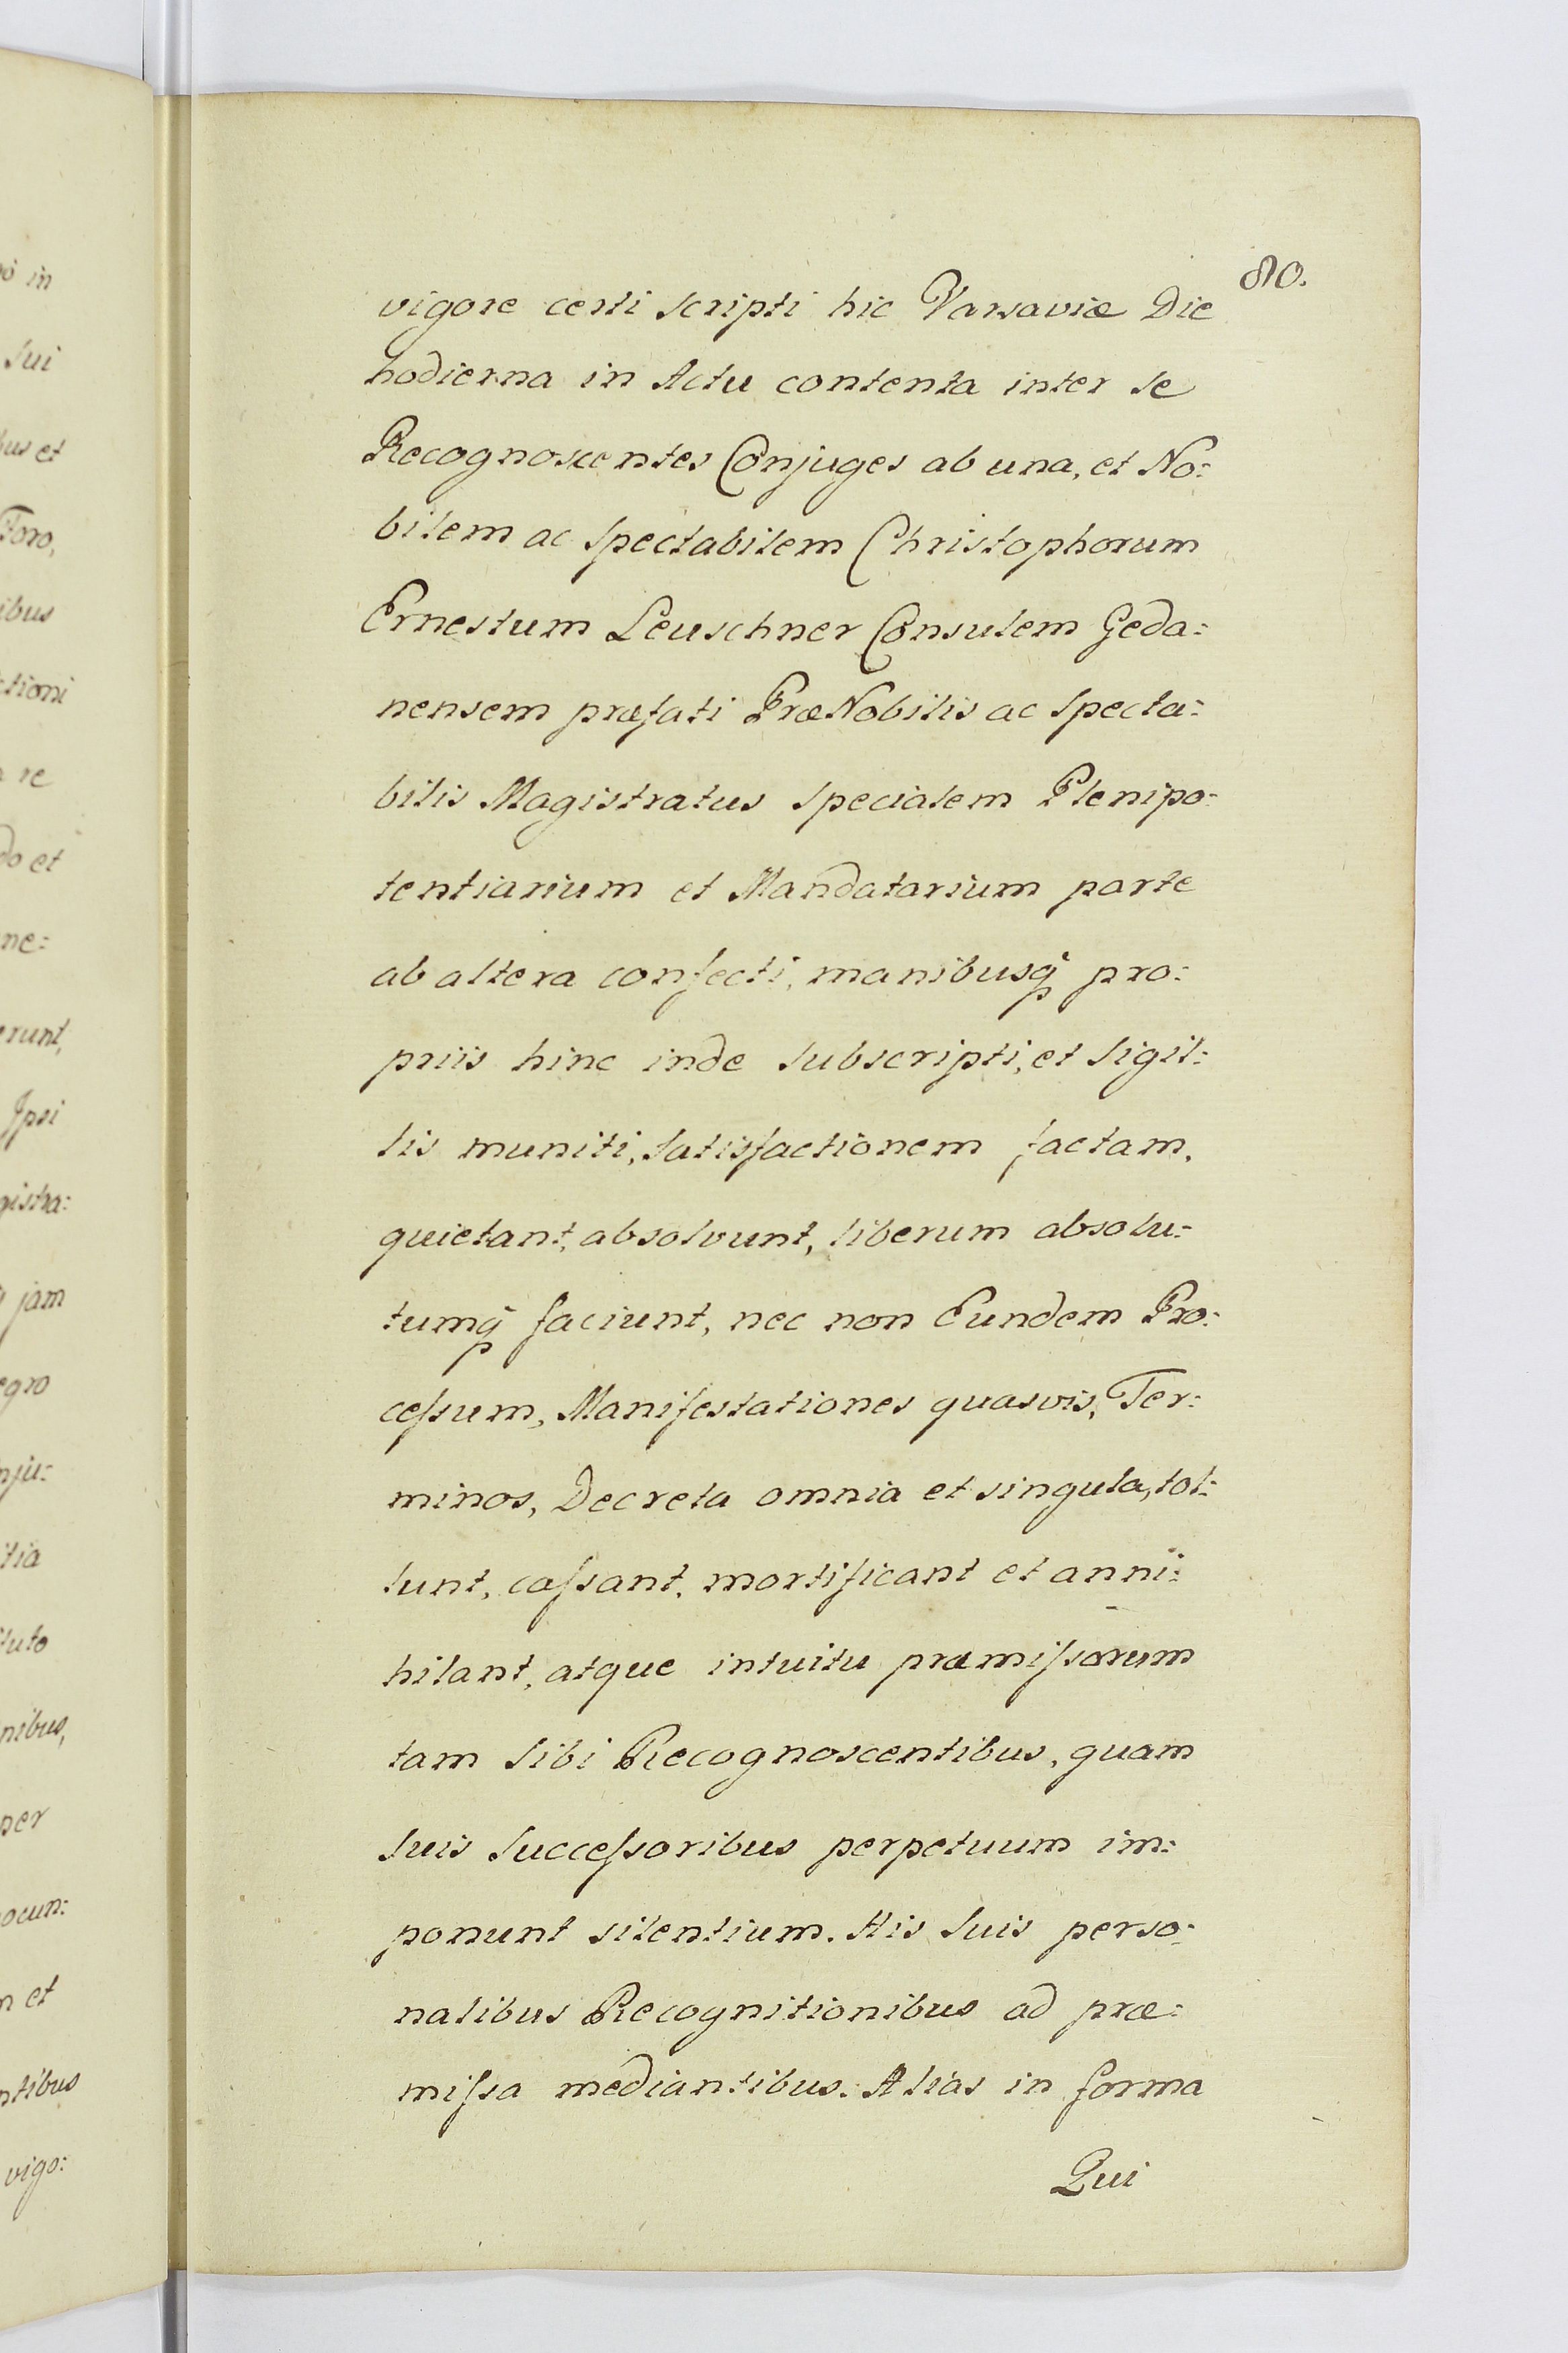 80.
vigore certi scripti hic Varsaviæ Die
hodierna in Actu contenta inter se
Recognoscentes Conjuges ab una, et No:
bilem ac Spectabilem Christophorum
Ernestum Leuschner Consulem Geda:
nensem præfati PræNobilis ac Specta:
bilis Magistratus Specialem Plenipo:
tentiarium et Mandatarium parte
ab altera confecti, manibusq₃ pro:
priis hinc inde Subscripti, et Sigil:
lis muniti, Satisfactionem factam,
quietant, absolvunt, liberum absolu:
tumq₃ faciunt, nec non Eundem Pro:
ceſsum, Manifestationes quasvis, Ter:
minos, Decreta omnia et singula, tol:
lunt, caſsant, mortificant et anni:
hilant, atque intuitu præmiſsorum
tam Sibi Recognoscentibus, quam
Suis Succeſsoribus perpetuum im:
ponunt silentium. His Suis perso:
nalibus Recognitionibus ad præ:
miſsa mediantibus. Alias in forma
Qui
in
Sui
bus et
Foro,
ibus
ctioni
re
do et
ne:
erunt,
Ipsi
gistra:
jam
egro
nju:
tia
luto
nibus,
per
ocun:
et
ntibus
vigo: